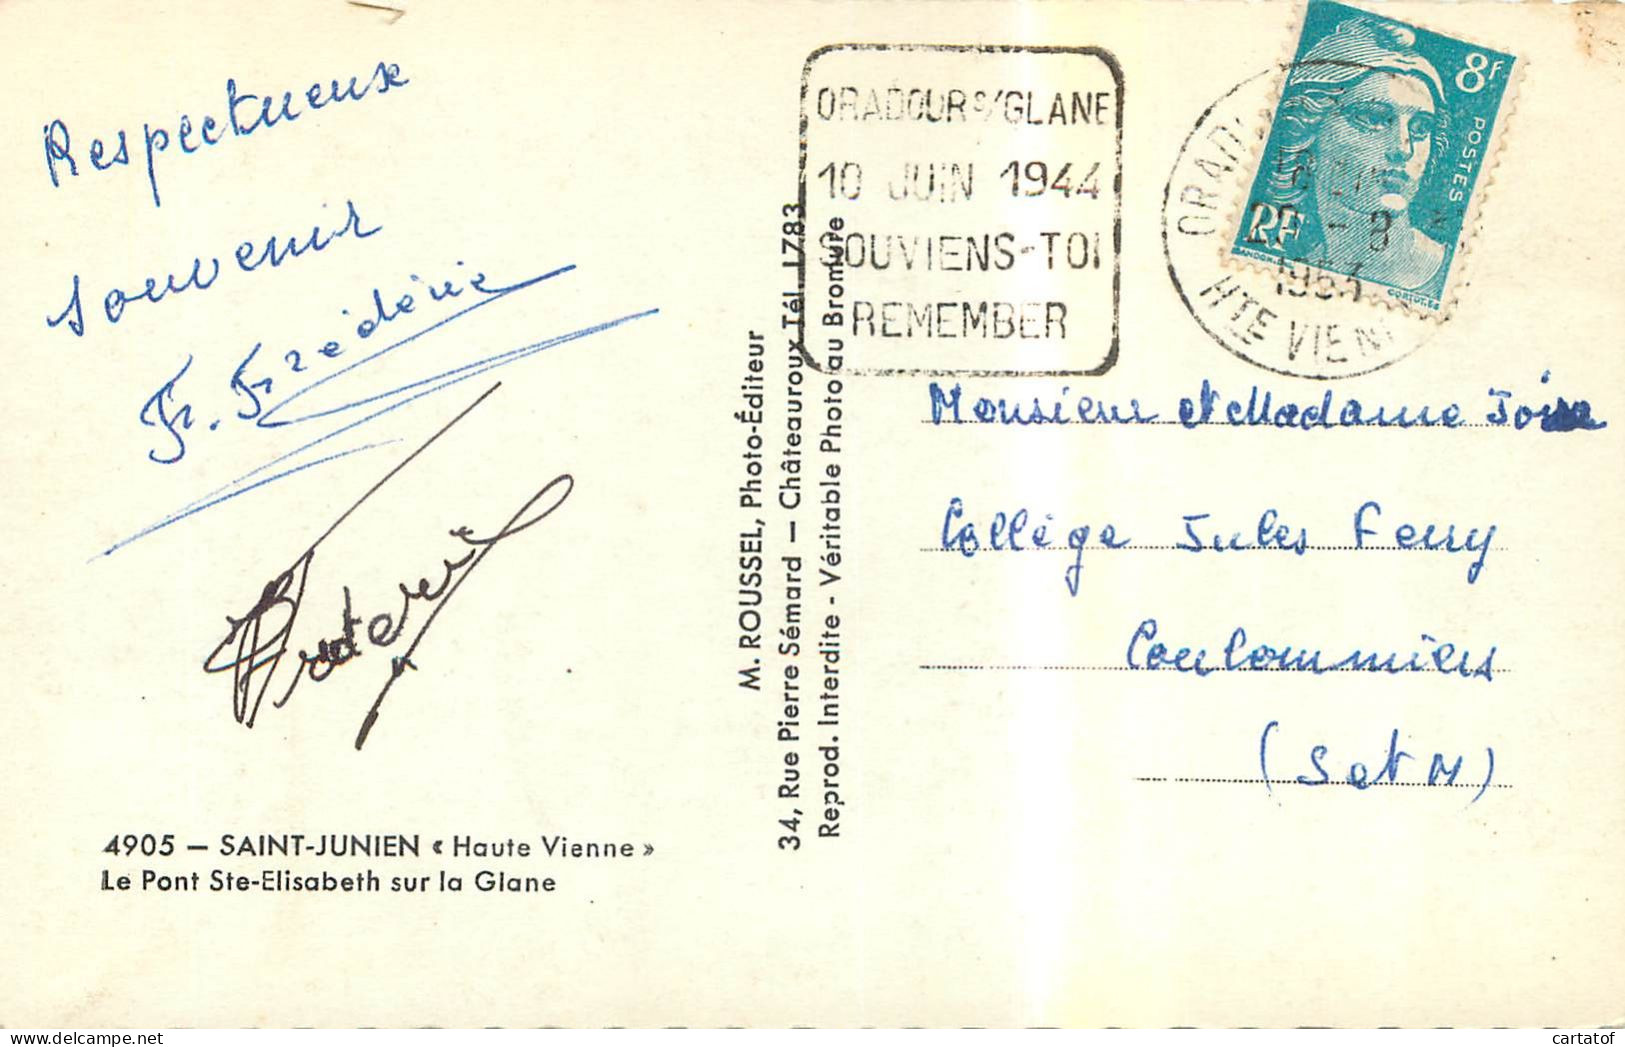 Respectueux
souvenir
Fr. Frédéric
4905 – SAINT-JUNIEN « Haute Vienne »
Le Pont Ste-Elisabeth sur la Glane
M. ROUSSEL, Photo-Éditeur
34, Rue Pierre Sémard – Châteauroux Tél. 1783
Reprod. Interdite - Véritable Photo au Bromure
ORADOUR S/GLANE
10 JUIN 1944
SOUVIENS-TOI
REMEMBER
8F
POSTES
RF
ORAD
18
20 - 8
1953
HTE VIEN
Monsieur et Madame
Collège Jules Ferry
Coulommiers
(S et M)
cartatof